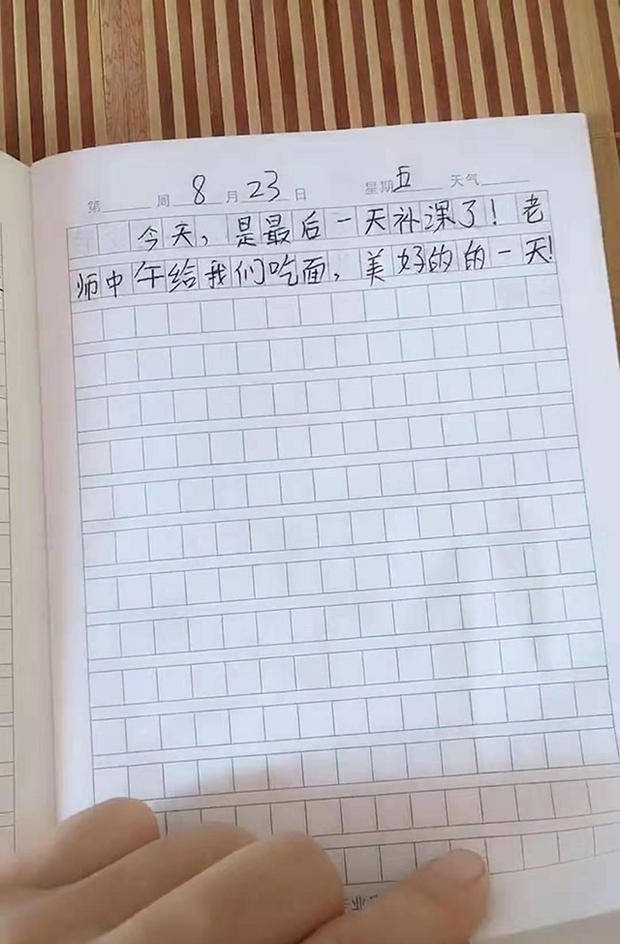 第 周 8月23日 星期五 天气
今天，是最后一天补课了！老
师中午给我们吃面，美好的的一天！